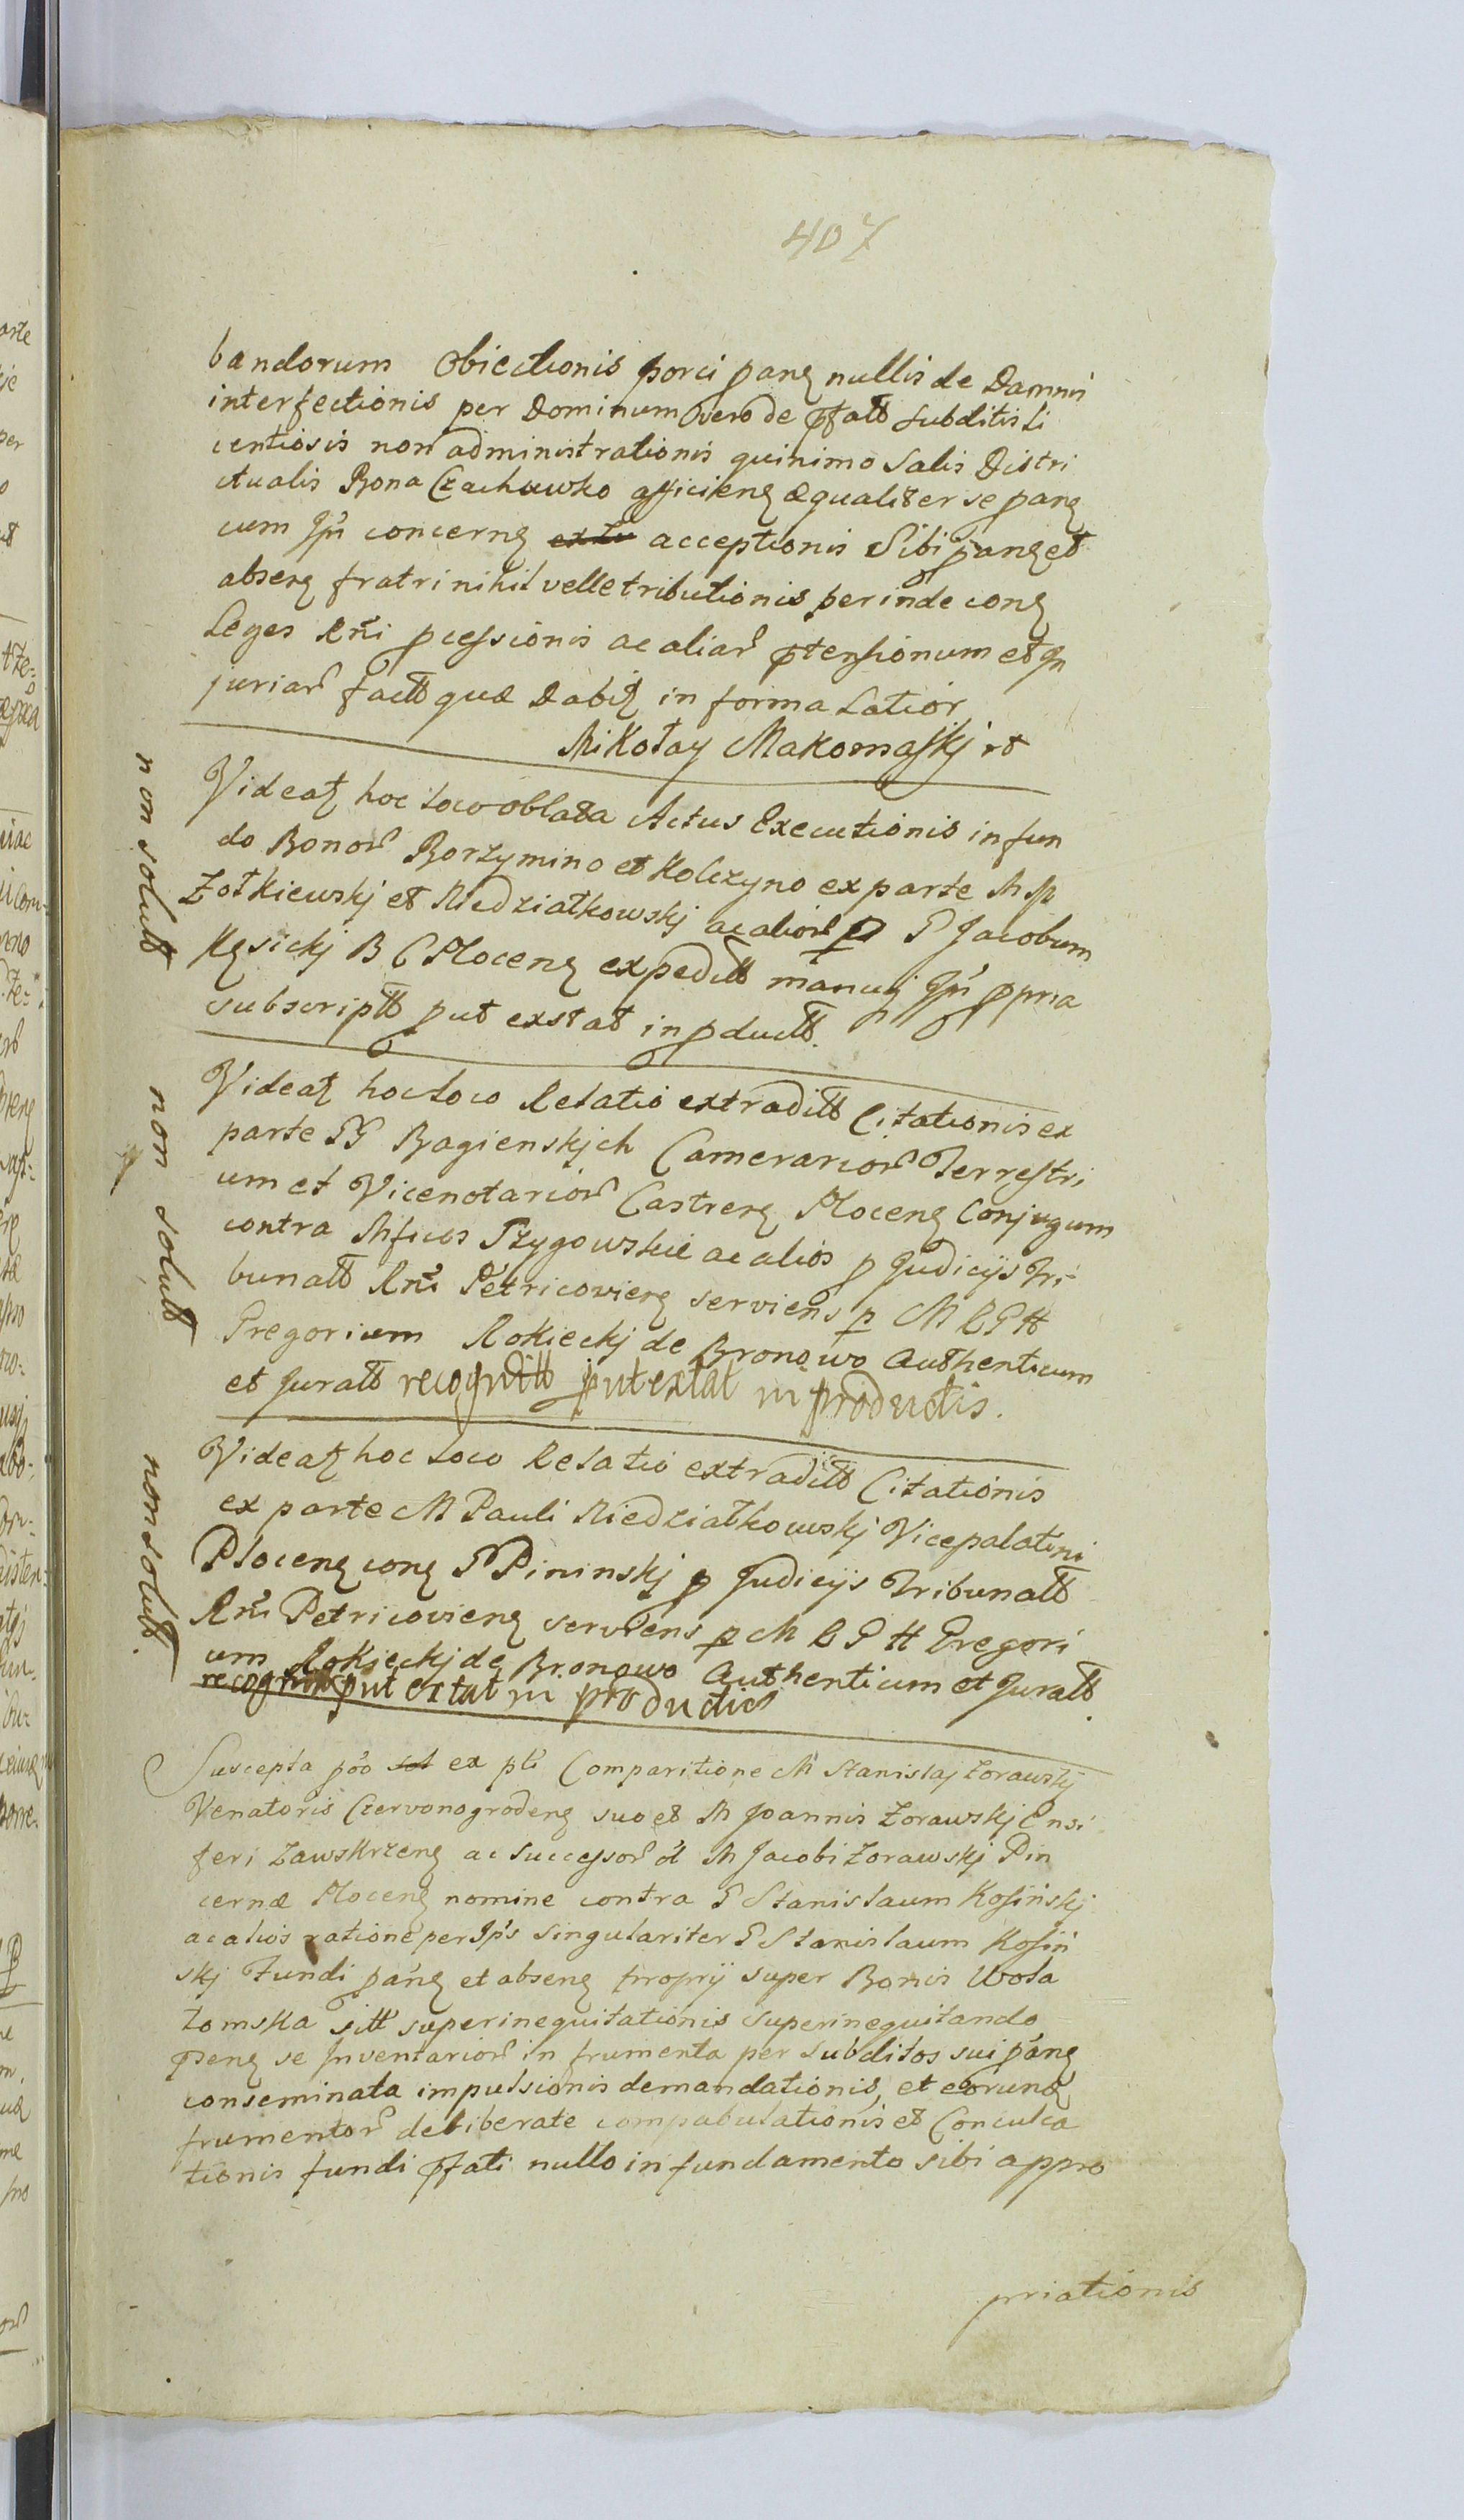 407
bandorum Obiectionis porci pang nullis de Damnis
interfectionis per Dominum vero de pfatt subditis Li
centiosis non administrationis quinimo Salis Distri
ctualis Bona Czachowko afficieng æqualiter se pang
cum Ipn concerng acceptionis Sibi pang et
abseng fratri nihil velle tributionis perinde cong
Leges Rni pcessionis ac aliar ptensionum et In
juriar factt quæ Dabit in forma Latior
Mikołay Makomaskj rt
non solutt
Videat hoc loco oblata Actus Executionis in fun
do Bonor Borzymino et Kolczyno ex parte M
Zołkiewskj et Niedziałkowskj ac alior p G Jacobum
Kęsickj B C Ploceng expeditt manuq Ipn ppria
subscriptt put exstat in pductt.
non solutt
Videat hoc loco Relatio extraditt Citationis ex
parte GG Bagienskich Camerarior Terrestri
um et Vicenotarior Castreng Ploceng Conjugum
contra Mficos Przygowskie ac alios p Judicijs Tri
bunatt Rni Petricovieng serviens p M R G H
Gregorium Rokieckj de Bronowo Authenticum
et Juratt recognitt put extat in productis.
non solutt
Videat hoc loco Relatio extraditt Citationis
ex parte M Pauli Niedziałkowskj Vicepalatini
Ploceng cong G Pininskj p Judicijs Tribunatt
Rni Petricovieng serviens p M R G H Gregori
um Rokieckj de Bronowo Authenticum et Juratt
recognitt put extat in productis
Suscepta pöo ex pti Comparitione M Stanislaj Zorawskj
Venatoris Czervonogrodeng suo et M Joannis Zorawskj Ensi
feri Zawskrzeng ac Successor M Jacobi Zorawskj Pin
cernæ Ploceng nomine contra G Stanislaum Kosinskj
ac alios ratione per Ips singulariter G Stanislaum Kosin
skj Fundi pang et abseng proprij super Bonis Wola
Łomska sitt superinequitationis superinequitando
peng se Inventarior in frumenta per subditos sui pang
conseminata impulsionis demandationis, et eorung
frumentor deliberate compabulationis et Conculca
tionis fundi pfati nullo in fundamento sibi appro
priationis